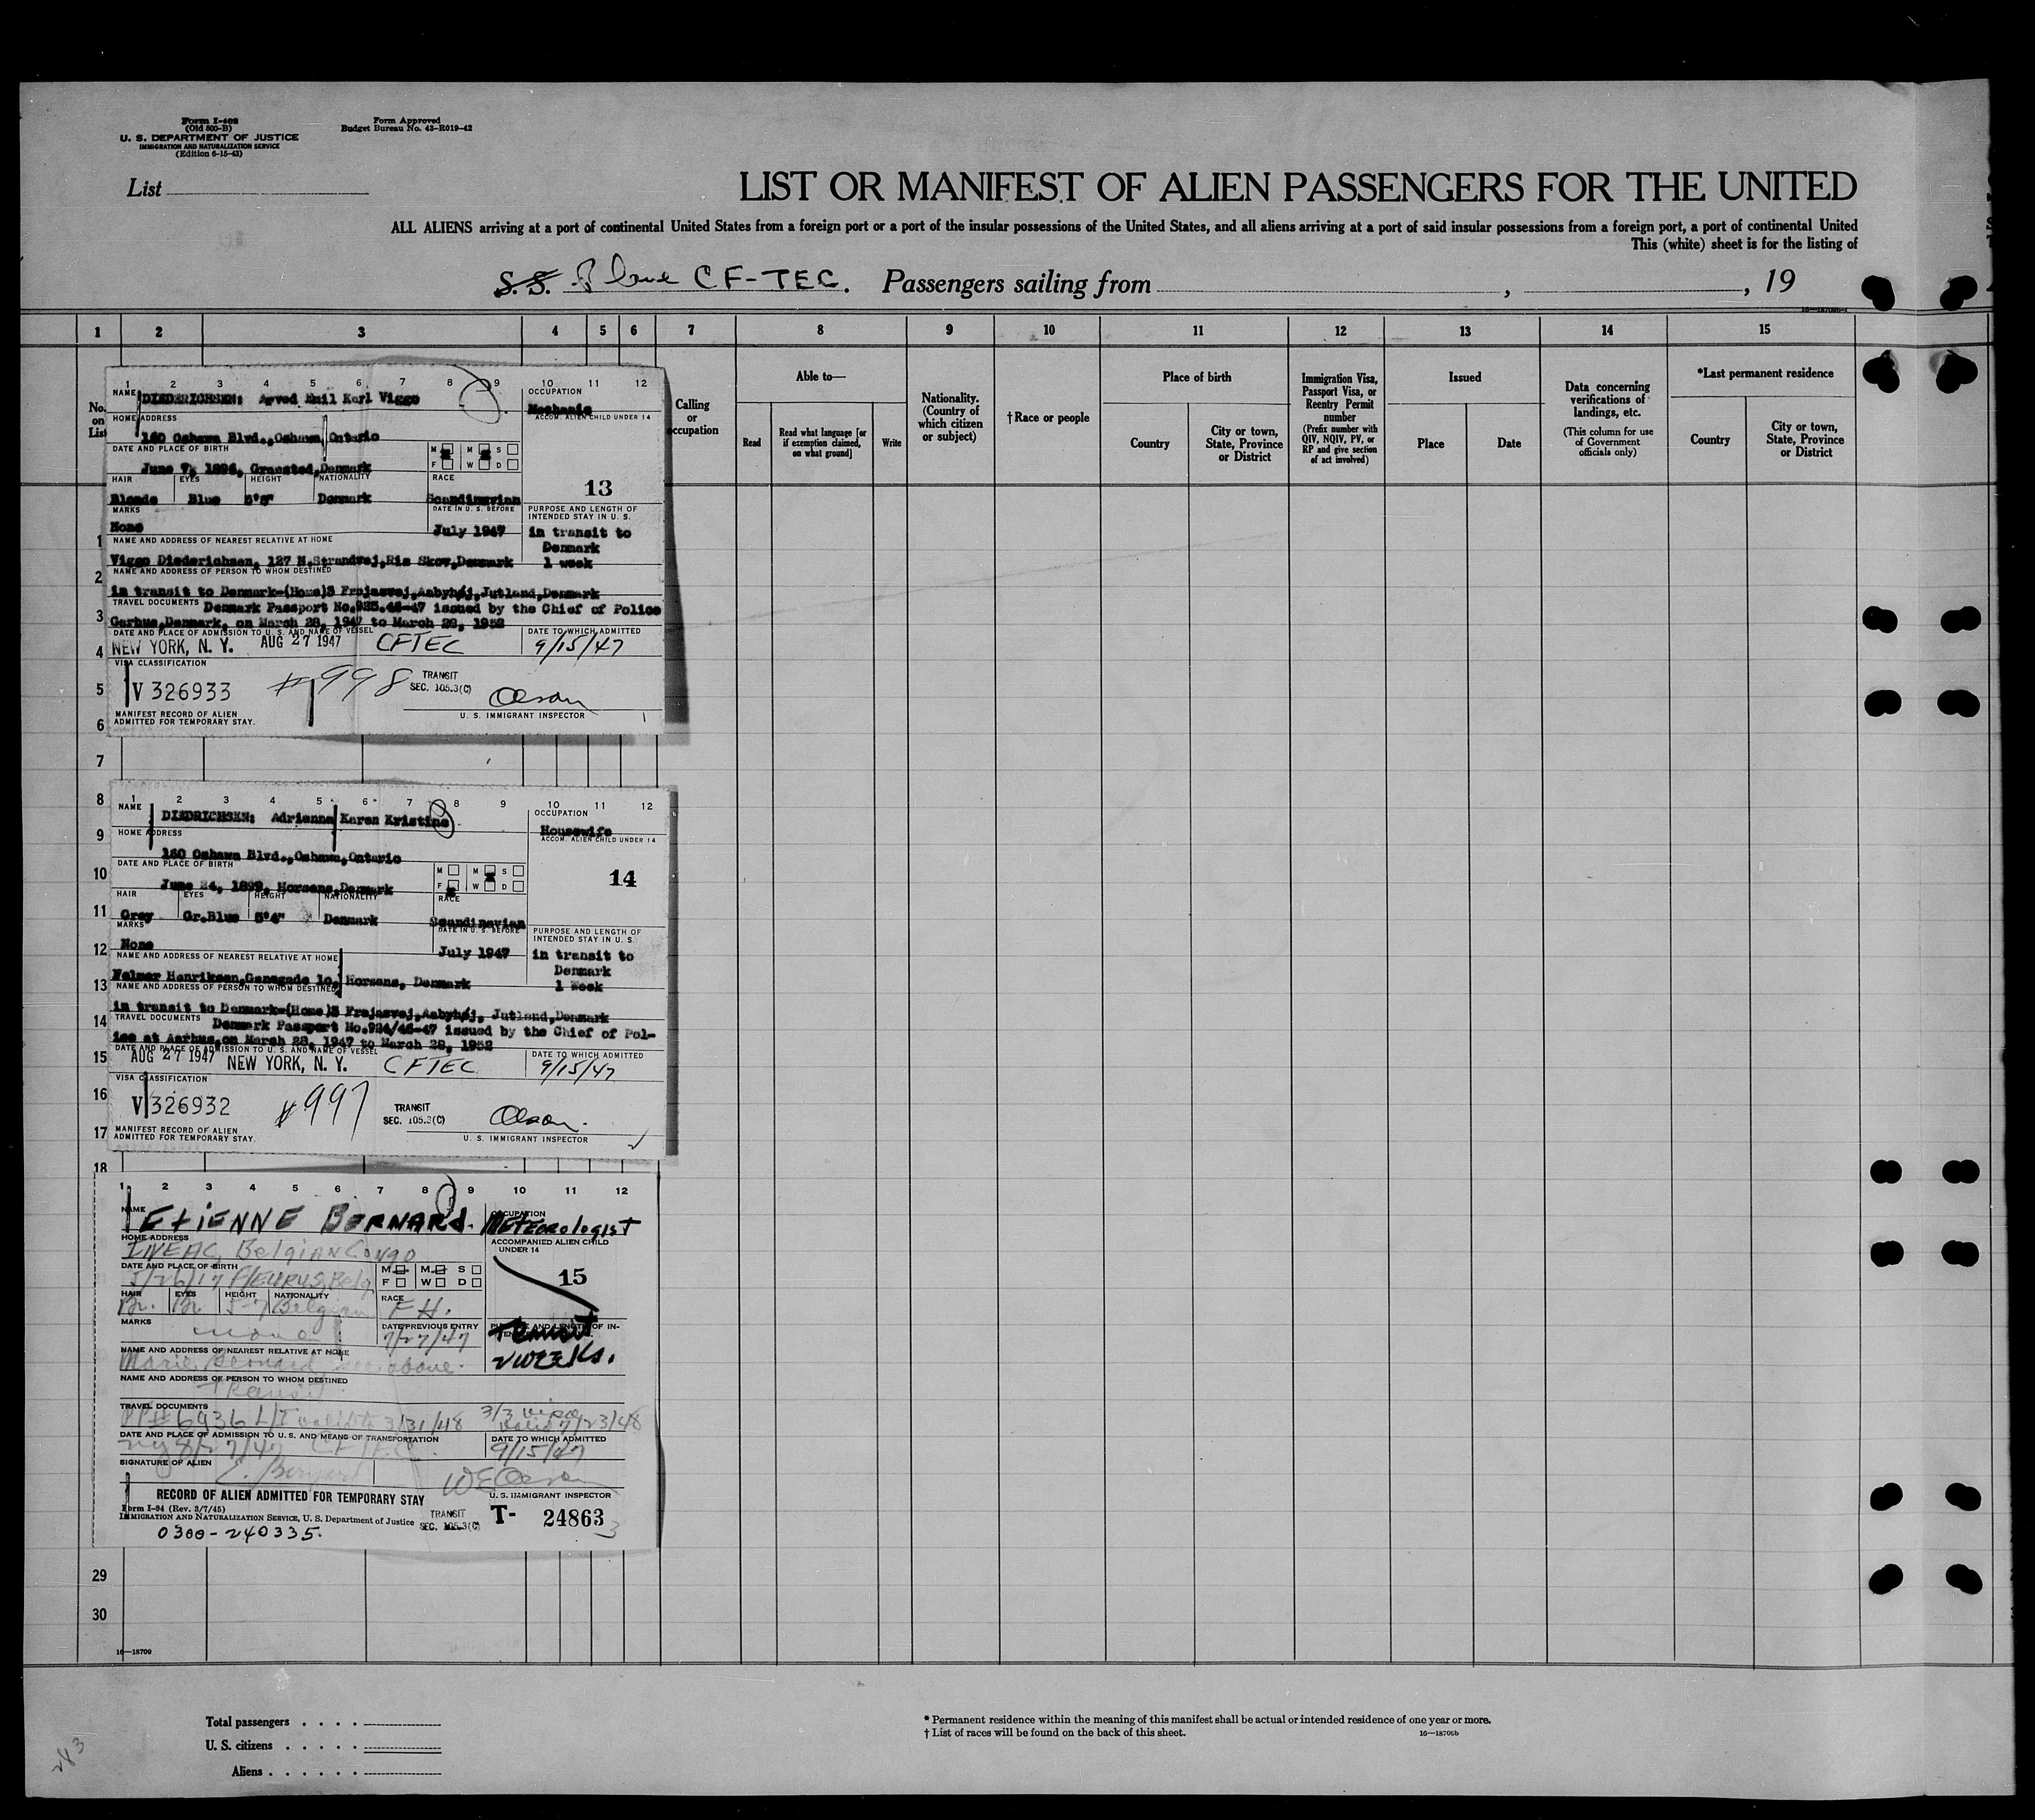 Form I-408
(Old 500-B)
U. S. DEPARTMENT OF JUSTICE
IMMIGRATION AND NATURALIZATION SERVICE
(Edition 6-15-43)
Form Approved
Budget Bureau No. 43-R019-42
List
LIST OR MANIFEST OF ALIEN PASSENGERS FOR THE UNITED
ALL ALIENS arriving at a port of continental United States from a foreign port or a port of the insular possessions of the United States, and all aliens arriving at a port of said insular possessions from a foreign port, a port of continental United
This (white) sheet is for the listing of
S.S. Plane CF-TEC. Passengers sailing from , , 19
1 2 3 4 5 6 7 8 9 10 11 12 13 14 15
No. on List
Calling or occupation
Able to—
Read
Read what language [or if exemption claimed, on what ground]
Write
Nationality. (Country of which citizen or subject)
† Race or people
Place of birth
Country
City or town, State, Province or District
Immigration Visa, Passport Visa, or Reentry Permit number
(Prefix number with QIV, NQIV, PV, or RP and give section of act involved)
Issued
Place
Date
Data concerning verifications of landings, etc.
(This column for use of Government officials only)
*Last permanent residence
Country
City or town, State, Province or District
1 2 3 4 5 6 7 8 9 10 11 12
NAME DIEDERICHSEN: Arved Emil Karl Viggo
OCCUPATION
Mechanic
ACCOM. ALIEN CHILD UNDER 14
HOME ADDRESS
160 Oshawa Blvd., Oshawa, Ontario
DATE AND PLACE OF BIRTH
M M S
F W D
June 7, 1896, Graested, Denmark
HAIR EYES HEIGHT NATIONALITY RACE
13
Blonde Blue 5'8" Denmark Scandinavian
MARKS
DATE IN U. S. BEFORE
PURPOSE AND LENGTH OF INTENDED STAY IN U. S.
None
July 1947
in transit to
Denmark
1 week
NAME AND ADDRESS OF NEAREST RELATIVE AT HOME
Viggo Diederichsen, 127 N.Strandvej, Ris Skov, Denmark
NAME AND ADDRESS OF PERSON TO WHOM DESTINED
in transit to Denmark-(Home)3 Frejasvej, Aabyhøj, Jutland, Denmark
TRAVEL DOCUMENTS Denmark Passport No.925.46-47 issued by the Chief of Police
Garhus, Denmark, on March 28, 1947 to March 28, 1952
DATE AND PLACE OF ADMISSION TO U. S. AND NAME OF VESSEL
DATE TO WHICH ADMITTED
NEW YORK, N. Y. AUG 27 1947 CFTEC 9/15/47
VISA CLASSIFICATION
V 326933 #998
TRANSIT
SEC. 105.3(C)
Olson
U. S. IMMIGRANT INSPECTOR
MANIFEST RECORD OF ALIEN
ADMITTED FOR TEMPORARY STAY.
1 2 3 4 5 6 7 8 9 10 11 12
NAME
DIEDRICHSEN: Adrienne Karen Kristine
OCCUPATION
Housewife
ACCOM. ALIEN CHILD UNDER 14
HOME ADDRESS
160 Oshawa Blvd., Oshawa, Ontario
DATE AND PLACE OF BIRTH
M M S
F W D
14
June 24, 1899, Horsens, Denmark
HAIR EYES HEIGHT NATIONALITY RACE
Grey Gr.Blue 5'4" Denmark Scandinavian
MARKS
DATE IN U. S. BEFORE
PURPOSE AND LENGTH OF INTENDED STAY IN U. S.
None
July 1947
in transit to
Denmark
1 week
NAME AND ADDRESS OF NEAREST RELATIVE AT HOME
Henriksen, 10, Horsens, Denmark
NAME AND ADDRESS OF PERSON TO WHOM DESTINED
in transit to Denmark-(Home)3 Frejasvej, Aabyhøj, Jutland, Denmark
TRAVEL DOCUMENTS
Denmark Passport No.924/46-47 issued by the Chief of Pol-
ice at Aarhus, on March 28, 1947 to March 28, 1952
DATE AND PLACE OF ADMISSION TO U. S. AND NAME OF VESSEL
DATE TO WHICH ADMITTED
AUG 27 1947 NEW YORK, N. Y. CFTEC 9/15/47
VISA CLASSIFICATION
V 326932 #997
TRANSIT
SEC. 105.3(C)
Olson
U. S. IMMIGRANT INSPECTOR
MANIFEST RECORD OF ALIEN
ADMITTED FOR TEMPORARY STAY.
1 2 3 4 5 6 7 8 9 10 11 12
NAME
EtiENNE BERNARd.
OCCUPATION
METEOROlogisT
HOME ADDRESS
INEAC, Belgian Congo
ACCOMPANIED ALIEN CHILD UNDER 14
DATE AND PLACE OF BIRTH
M M S
F W D
15
3/26/17 FLEURUS, Belg
HAIR EYES HEIGHT NATIONALITY RACE
Br. Br 5-7 Belgian FH.
MARKS
none
DATE PREVIOUS ENTRY
7/27/47
Transit
2 WEEKS.
NAME AND ADDRESS OF NEAREST RELATIVE AT HOME
Marie Bernard see above.
NAME AND ADDRESS OF PERSON TO WHOM DESTINED
Transit
TRAVEL DOCUMENTS
PP# 6936 L/T valid to 3/31/48 3/3 visa valid 7/23/48
DATE AND PLACE OF ADMISSION TO U. S. AND MEANS OF TRANSPORTATION
DATE TO WHICH ADMITTED
NY 8/27/47 CFTEC 9/15/47
SIGNATURE OF ALIEN
E. Bernard
WE Olson
RECORD OF ALIEN ADMITTED FOR TEMPORARY STAY
U. S. IMMIGRANT INSPECTOR
Form I-94 (Rev. 3/7/45)
IMMIGRATION AND NATURALIZATION SERVICE, U. S. Department of Justice
TRANSIT
SEC. 105.3(C)
T- 24863
3
0300-240335.
1
2
3
4
5
6
7
8
9
10
11
12
13
14
15
16
17
18
29
30
16—18709
Total passengers . . . .
U. S. citizens . . . . .
Aliens . . . . . .
* Permanent residence within the meaning of this manifest shall be actual or intended residence of one year or more.
† List of races will be found on the back of this sheet.
16—18709b